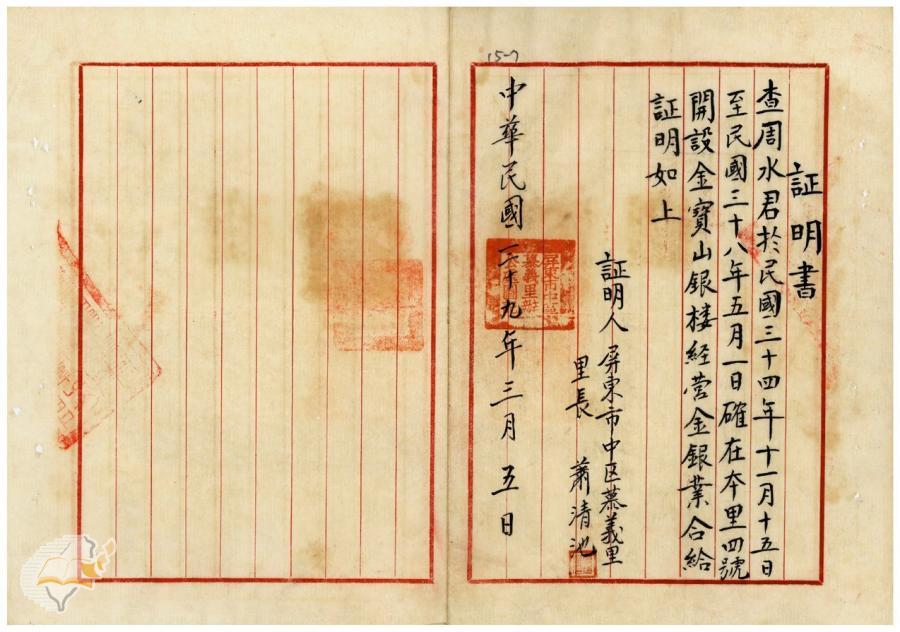 15-7
証明書
查周水君於民國三十四年十一月十五日
至民國三十八年五月一日確在本里四號
開設金寶山銀楼経营金銀業合給
証明如上
証明人屏東市中区慕義里
里長 蕭清池
中華民國三十九年三月五日